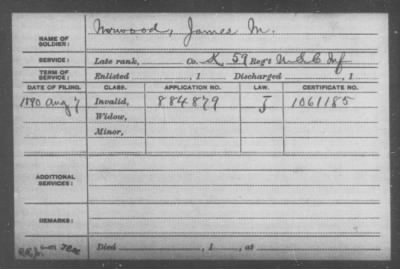 NAME OF SOLDIER: Norwood, James M.
SERVICE: Late rank, Co. K, 59 Reg't U.S.C. Inf
TERM OF SERVICE: Enlisted , 1 Discharged , 1
DATE OF FILING. CLASS. APPLICATION NO. LAW. CERTIFICATE NO.
1890 Aug 7 Invalid, 884879 J 1061185
Widow,
Minor,
ADDITIONAL SERVICES:
REMARKS:
Died , 1 , at